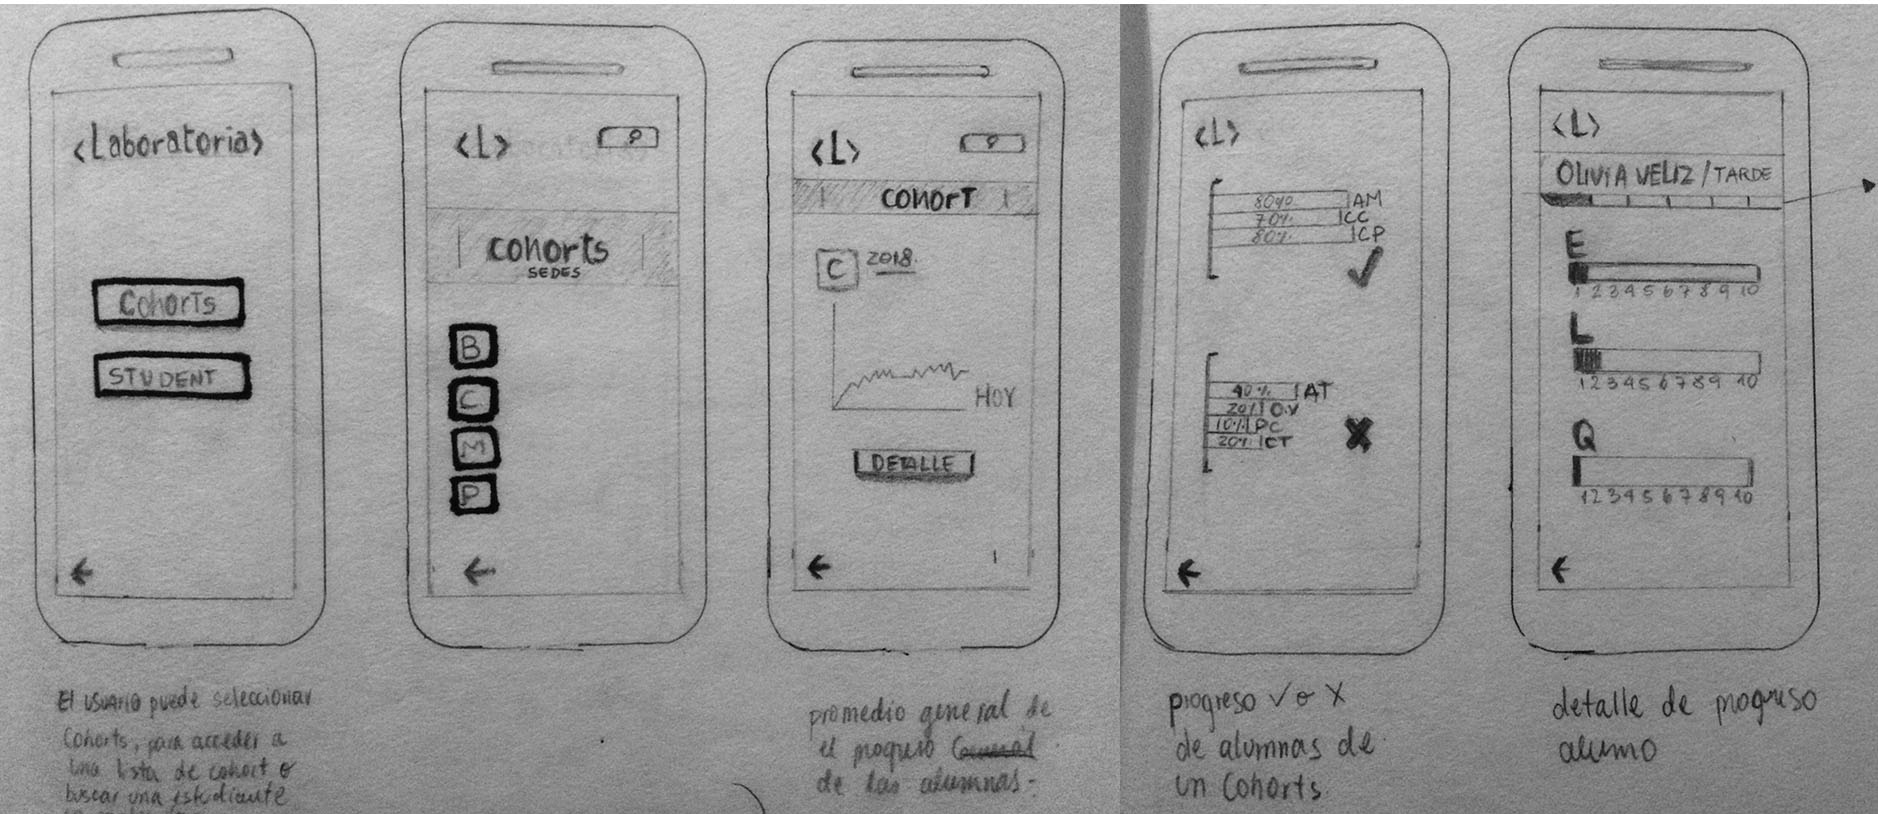 <Laboratoria>
Cohorts
STUDENT
El usuario puede seleccionar
Cohorts, para acceder a
una lista de cohort o
buscar una estudiante
<L>
cohorts
SEDES
B
C
M
P
<L>
COHORT
C 2018.
HOY
DETALLE
promedio general de
el progreso
de las alumnas-
<L>
80% AM
70% CC
80% CP
40% AT
20% O.V
10% PC
20% CT
progreso ✓ o X
de alumnas de
un Cohorts.
<L>
OLIVIA VELIZ / TARDE
E
1 2 3 4 5 6 7 8 9 10
L
1 2 3 4 5 6 7 8 9 10
Q
1 2 3 4 5 6 7 8 9 10
detalle de progreso
alumo